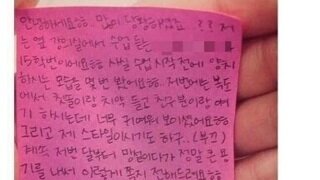 안녕하세요ㅎㅎ 많이 당황하셨죠 ?? 저
는 옆 강의실에서 수업 듣는
15학번이에요ㅎㅎ 사실 수업 시작전에 양치
하시는 모습을 몇번 봤어요ㅎㅎ. 저번에는 복도
에서 칫솔이랑 치약 들고 친구분이랑 얘
기 하시는데 너무 귀여워 보이셨어요ㅎㅎ
그리고 제 스타일이시기도 하구..(부끄)
계속 저번 달부터 망설이다가 정말 큰 용
기를 내서 이렇게 쪽지 전해드려요ㅎㅎ